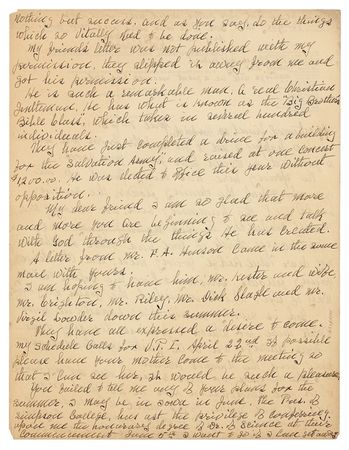 nothing but success. And as you say, do the things
which so vitally need to be done.
My friends letter was not published with my
permission, they slipped it away from me and
got his permission.
He is such a remarkable man, a real Christian
Gentleman. He has what is known as the "Big Brother
Bible Class", which takes in several hundred
individuals.
They have just completed a drive for a building
for the "Salvation Army," and raised at one Concert
$1200.00. He was elected to office this year without
opposition.
My dear friend I am so glad that more
and more you are beginning to see and talk
with God through the things He has created.
A letter from Mr. H. A. Hinson came in the same
mail with yours.
I am hoping to have him, Mr. and wife,
Mr. Crighton, Mr. Riley, Mr. Dick and Mr.
Virgil down this summer.
They have all expressed a desire to come.
My schedule calls for V.P.I. April 23rd if possible
please have your mother come to the meeting so
that I can see her, it would be such a pleasure.
You failed to tell me any of your plans for the
summer, I may be in Iowa in June, the Pres. of
Simpson College, has ast the privilege of Confering
upon me the honorary degree of Dr. of Science at their
Commencement June 5th I want to go if I can get away